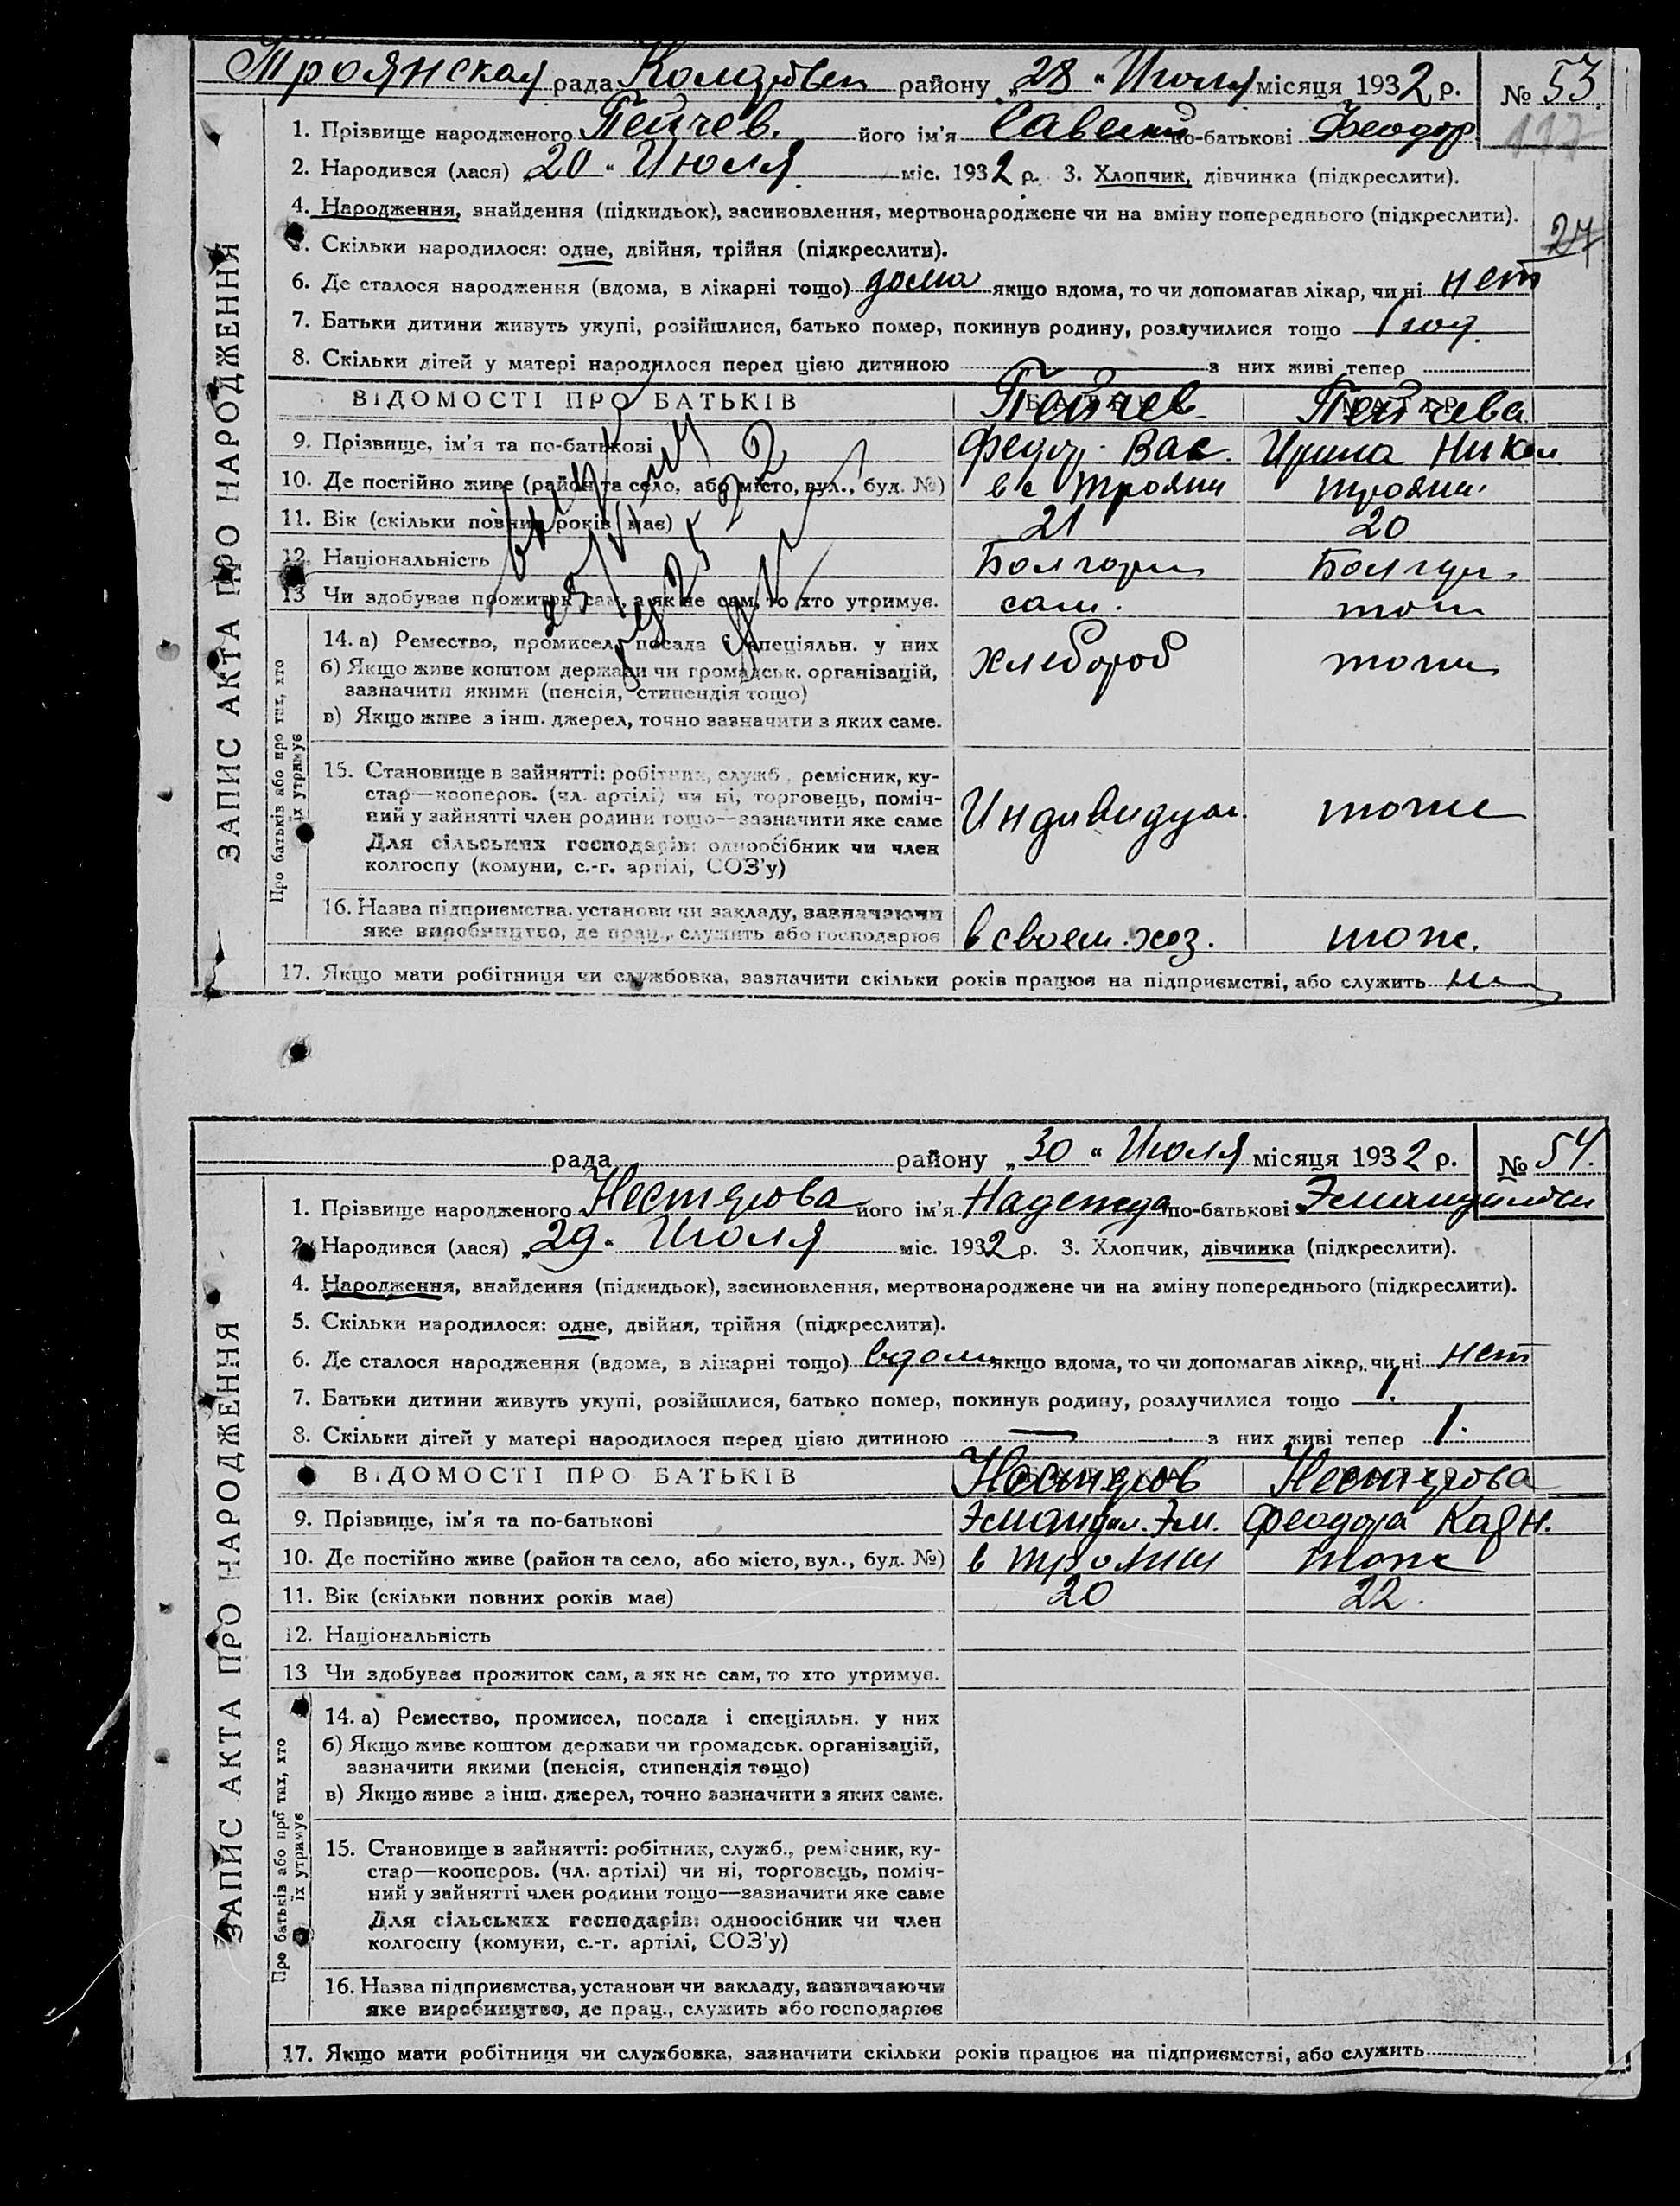 Троянская рада района району „28 “ Июля місяця 1932 р. № 53.
117
1. Прізвище народженого Пейчев. його ім'я Савелий по-батькові Феодор.
2. Народився (лася) „20 “ Июля міс. 1932 р. 3. Хлопчик, дівчинка (підкреслити).
4. Народження, знайдення (підкидьок), засиновлення, мертвонароджене чи на зміну попереднього (підкреслити).
27
5. Скільки народилося: одне, двійня, трійня (підкреслити).
6. Де сталося народження (вдома, в лікарні тощо) дома якщо вдома, то чи допомагав лікар, чи ні нет
7. Батьки дитини живуть укупі, розійшлися, батько помер, покинув родину, розлучилися тощо 1 год.
8. Скільки дітей у матері народилося перед цією дитиною — з них живі тепер
ВІДОМОСТІ ПРО БАТЬКІВ Пейчев Пейчева
9. Прізвище, ім'я та по-батькові Федор. Вас. Ирина Никол.
10. Де постійно живе (район та село, або місто, вул., буд. №) в с Трояни Трояни.
11. Вік (скільки повних років має) 21 20
12. Національність Болгарин Болгар.
13 Чи здобуває прожиток сам, а як не сам, то хто утримує. сам. тож
14. а) Ремество, промисел, посада і спеціяльн. у них хлебороб тоже
б) Якщо живе коштом держави чи громадськ. організацій,
зазначити якими (пенсія, стипендія тощо)
в) Якщо живе з інш. джерел, точно зазначити з яких саме.
15. Становище в зайнятті: робітник, служб., ремісник, ку-
стар—кооперов. (чл. артілі) чи ні, торговець, поміч-
ний у зайнятті член родини тощо—зазначити яке саме Индивидуал. тоже
Для сільських господарів: одноосібник чи член
колгоспу (комуни, с.-г. артілі, СОЗ'у)
16. Назва підприємства, установи чи закладу, зазначаючи
яке виробництво, де прац., служить або господарює в своем. хоз. тоже.
17. Якщо мати робітниця чи службовка, зазначити скільки років працює на підприємстві, або служить
Про батьків або про тих, хто
їх утримує
ЗАПИС АКТА ПРО НАРОДЖЕННЯ
рада району „30 “ Июля місяця 1932 р. № 54.
1. Прізвище народженого Нестерова його ім'я Надежда по-батькові
2. Народився (лася) „29 “ Июля міс. 1932 р. 3. Хлопчик, дівчинка (підкреслити).
4. Народження, знайдення (підкидьок), засиновлення, мертвонароджене чи на зміну попереднього (підкреслити).
5. Скільки народилося: одне, двійня, трійня (підкреслити).
6. Де сталося народження (вдома, в лікарні тощо) вдома якщо вдома, то чи допомагав лікар, чи ні нет
7. Батьки дитини живуть укупі, розійшлися, батько помер, покинув родину, розлучилися тощо 1.
8. Скільки дітей у матері народилося перед цією дитиною — з них живі тепер 1.
ВІДОМОСТІ ПРО БАТЬКІВ Нестеров Нестерова
9. Прізвище, ім'я та по-батькові Эмануил. Эм. Феодора
10. Де постійно живе (район та село, або місто, вул., буд. №) в Трояни тоже
11. Вік (скільки повних років має) 20 22.
12. Національність
13 Чи здобуває прожиток сам, а як не сам, то хто утримує.
14. а) Ремество, промисел, посада і спеціяльн. у них
б) Якщо живе коштом держави чи громадськ. організацій,
зазначити якими (пенсія, стипендія тощо)
в) Якщо живе з інш. джерел, точно зазначити з яких саме.
15. Становище в зайнятті: робітник, служб., ремісник, ку-
стар—кооперов. (чл. артілі) чи ні, торговець, поміч-
ний у зайнятті член родини тощо—зазначити яке саме
Для сільських господарів: одноосібник чи член
колгоспу (комуни, с.-г. артілі, СОЗ'у)
16. Назва підприємства, установи чи закладу, зазначаючи
яке виробництво, де прац., служить або господарює
17. Якщо мати робітниця чи службовка, зазначити скільки років працює на підприємстві, або служить
Про батьків або про тах, хто
їх утримує
ЗАПИС АКТА ПРО НАРОДЖЕННЯ